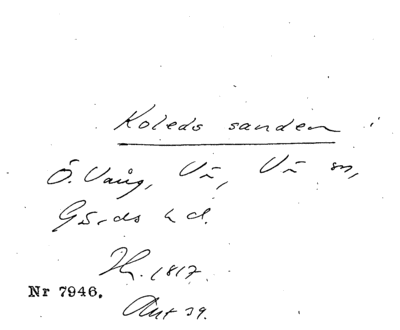 Koleds sanden i
Ö. Vång, Vä, Vä sn,
Gärds hd.
Hr. 1817.
Nr 7946.
Ant 39.